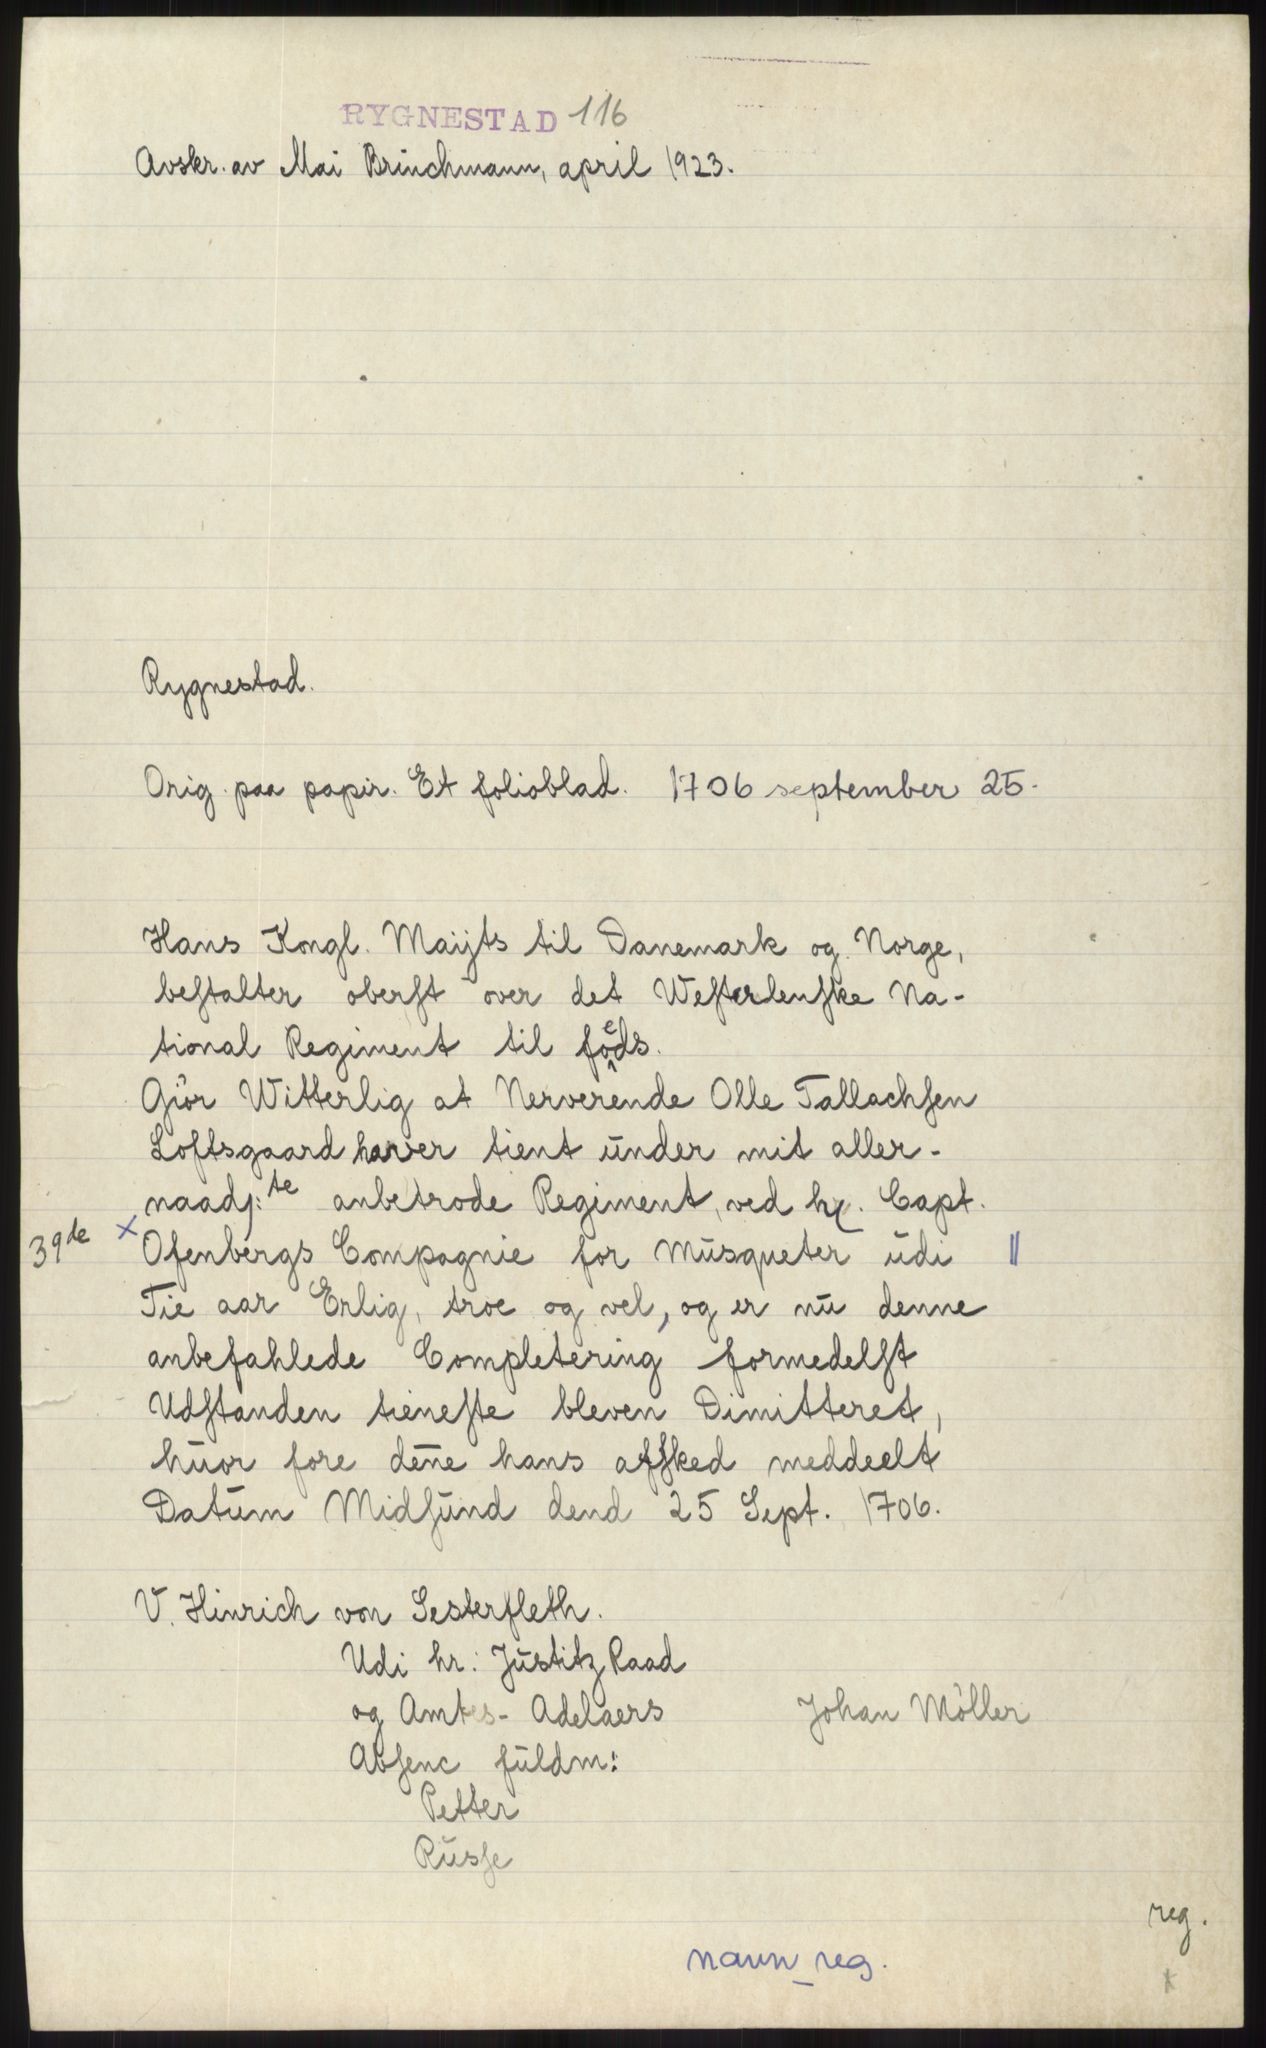 RYGNESTAD 116
Avskr. av Mai Brinchmann, april 1923.
Rygnestad.
Orig. paa papir. Et folioblad. 1706 september 25.
Hans Kongl. Maijts til Danemark og Norge,
beſtalter oberſt over det Weſterlenſke Na-
tional Regiment til foeds.
Giör Witterlig at Nerverende Olle Tallachſen
Loftsgaard haver tient ŭnder mit aller-
naadj:te anbetrode Regiment, ved hr. Capt.
39de x Ofenbergs Compagnie for Mŭsqueter ŭdi ||
Tie aar Erlig, troe og vel, og er nŭ denne
anbefahlede Completering formedelſt
Udſtanden tieneſte bleven Dimitteret,
hŭor fore den̄e hans afſked meddeelt
Datŭm Midſŭnd dend 25 Sept. 1706.
V. Hinrich von Sesterfleth.
Udi hr: Jŭstitz Raad
og Amtes- Adelaers Johan Möller
Abſenc fŭldm:
Petter
Rŭsſe
reg.
navn_reg.
x